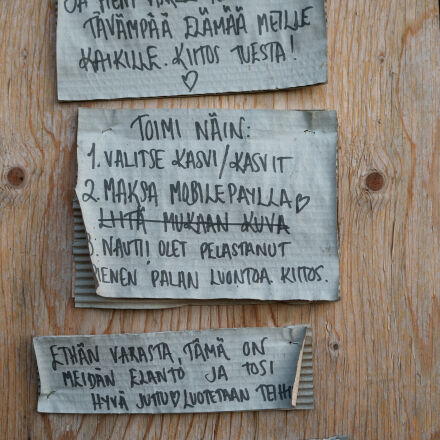 JA PIENI
TÄVÄMPÄÄ ELÄMÄÄ MEILLE
KAIKILLE. KIITOS TUESTA!
♡
TOIMI NÄIN:
1. VALITSE KASVI/KASVIT
2. MAKSA MOBILEPAYLLA ♡
LIITÄ MUKAAN KUVA
3. NAUTI! OLET PELASTANUT
PIENEN PALAN LUONTOA. KIITOS.
ETHÄN VARASTA, TÄMÄ ON
MEIDÄN ELANTO JA TOSI
HYVÄ JUTTU ♡ LUOTETAAN TEIHI